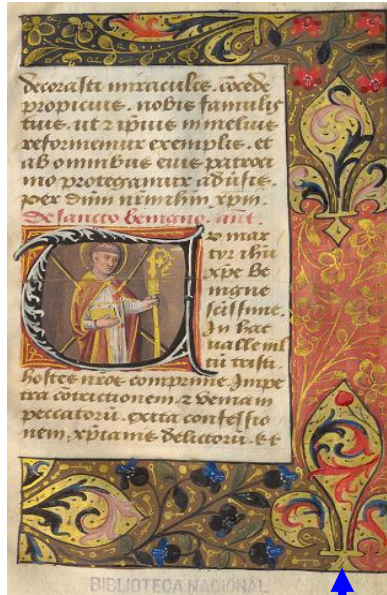 decorasti miraculis. cōcede
propicius. nobis famulis
tuis. ut ⁊ ipius in melius
reformemur exemplis. et
ab omnibus eius patroci
nio protegamur adūsis.
per dūm nrm ihm xpm.
De sancto benigno. ant.
O mar
tyr ihu
xpe be
nigne
scissime.
In hac
valle ml
tū tristi.
hostes nros comprime. Impe
tra cōtrictionem. ⁊ veniam
peccatorū. extra confessio
nem. xp̄ianis delictorū. Et
BIBLIOTECA NACIONAL